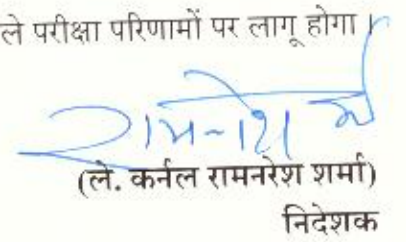 ले परीक्षा परिणामों पर लागू होगा।
रामनरेश शर्मा
(ले. कर्नल रामनरेश शर्मा)
निदेशक